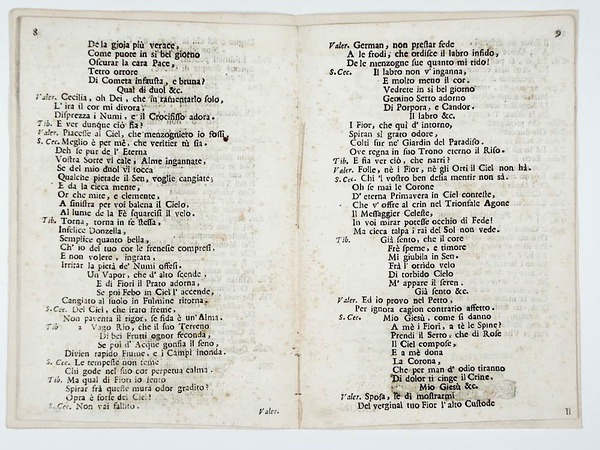 8
Della gioja più verace,
Come puote in si bel giorno
Oscurar la cara Pace,
Tetro orrore
Di Cometa infausta, e bruna?
Qual di duol &c.
Valer. Cecilia, oh Dei, che in ramentarlo solo,
L' ira il cor mi divora;
Disprezza i Numi, e il Crocifisso adora.
Tib. E ver dunque ciò sia?
Valer. Piacesse al Ciel, che menzogniero io fossi.
S. Cec. Meglio è per mè, che veritier tù sia.
Deh se pur de l' Eterna
Vostra Sorte vi cale, Alme ingannate,
Se del mio duol vi tocca
Qualche pietade il Sen, voglie cangiate;
E da la cieca mente,
Or che mite, e clemente,
A sinistra per voi balena il Cielo.
Al lume de la Fè squarcisi il velo.
Tib. Torna, torna in te stessa,
Infelice Donzella,
Semplice quanto bella,
Ch' io del tuo cor le frenesie compresi,
E non volere, ingrata,
Irritar la pietà de' Numi offesi.
Un Vapor, che d' alto scende,
E di Fiori il Prato adorna,
Se poi Febo in Ciel l' accende,
Cangiato al suolo in Fulmine ritorna.
S. Cec. Del Ciel, che irato freme,
Non paventa il rigor, se fida è un'Alma.
Tib a Vago Rio, che il suo Terreno
Di bei Frutti ognor feconda,
Se poi d' Acque gonfia il seno,
Divien rapido Fiume, e i Campi inonda.
S. Cec. Le tempeste non teme
Chi gode nel suo cor perpetua calma.
Tib. Ma qual di Fiori io sento
Spirar frà queste mura odor gradito?
Opra è forse del Ciel?
S. Cec. Non vai fallito.
Valer.
9
Valer. German, non prestar fede
A le frodi, che ordisce il labro infido,
De le menzogne sue quanto mi rido!
S. Cec. Il labro non v'inganna,
E molto meno il cor.
Vedrete in sì bel giorno
Gemino Serto adorno
Di Porpora, e Candor.
Il labro &c.
I Fior, che quì d' intorno,
Spiran sì grato odore,
Colti fur ne' Giardin del Paradiso.
Ove regna in suo Trono eterno il Riso.
Tib. E fia ver ciò, che narri?
Valer. Folle, nè i Fior, nè gli Orti il Ciel non hà.
S. Cec. Chi 'l vostro ben desia mentir non sà.
Oh se mai le Corone
D' eterna Primavera in Ciel conteste,
Che v' offre al crin nel Trionfale Agone
Il Messaggier Celeste,
In voi mirar potesse occhio di Fede!
Ma cieca talpa i rai del Sol non vede.
Tib. Già sento, che il core
Frè speme, e timore
Mi giubila in Sen.
Frà l' orrido velo
Di torbido Cielo
M' appare il seren.
Già sento &c.
Valer. Ed io provo nel Petto,
Per ignota cagion contrario affetto.
S. Cec. Mio Giesù, come si danno
A mè i Fiori, a tè le Spine?
Prendi il Serto, che di Rose
Il Ciel compose,
E a mè dona
La Corona,
Che per man d' odio tiranno
Di dolor ti cinge il Crine.
Mio Giesù &c.
Valer. Sposa, se di mostrarmi
Del verginal tuo Fior l' alto Custode
Il